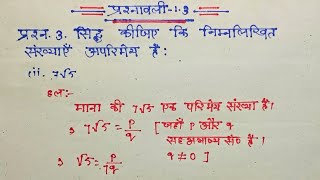 प्रश्नावली-1.3
प्रश्न. 3. सिद्ध कीजिए कि निम्नलिखित
संख्याएँ अपरिमेय हैं:
(ii). 7√5
हल:-
माना की 7√5 एक परिमेय संख्या है।
⇒ 7√5 = p/q [जहाँ p और q
सह अभाज्य संख है।
⇒ √5 = p/7q q ≠ 0]